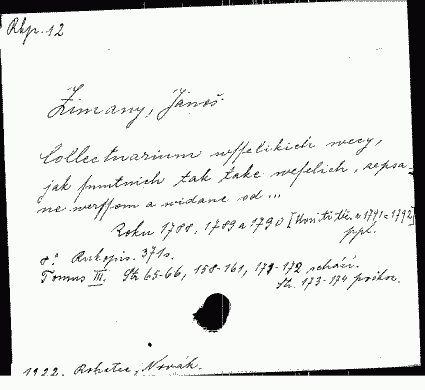 Rkp. 12
Zimany, Jánoš
Collectuarium wsselikich wecy,
jak smutnich tak take weselich, sepsa-
ne werssom a widane od ...
Roku 1788, 1789 a 1790 [Kon. tit. a 1791 a 1792]
ppl.
8° Rukopis. 371 s.
Tomus III. Str 65-66, 158-161, 171-172 schází.
Str. 173-174 poškoz.
1922. Rokatec, Novák.